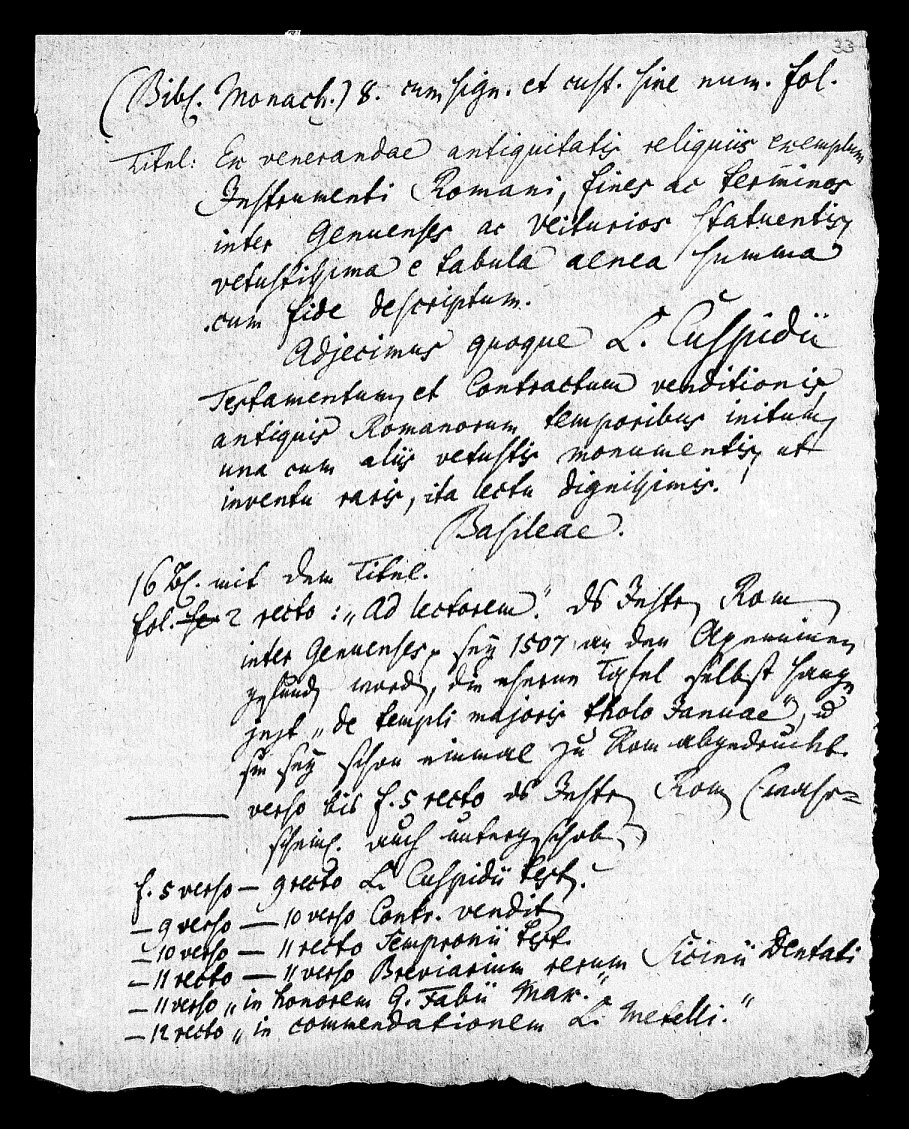 33
(Bibl. Monach.) 8. cum sign. et cust. sine num. fol.
Titel: Ex venerandae antiquitatis reliquiis exemplum
Instrumenti Romani, fines ac terminos
inter Genuenses ac Veiturios statuentis,
vetustissima e tabula aenea summa
cum fide descriptum.
Adjecimus quoque L. Cuspidii
Testamentum, et Contractum venditionis,
antiquis Romanorum temporibus initum,
una cum aliis vetustis monumentis, ut
inventu raris, ita lectu dignissimis.
Basileae.
16 Bl. mit dem Titel.
fol. 2 recto: „Ad lectorem." ds Instr Rom
inter Genuenses, sey 1507 an den Apenninen
gefund word, die eherne Tafel selbst hange
jezt „de templi majoris tholo Januae", ud
sie sey schon einmal zu Rom abgedruckt.
verso bis f. 5 recto ds Instr Rom (wahr=
scheinl. auch untergschob)
f. 5 verso — 9 recto L. Cuspidii test.
— 9 verso — 10 verso Contr. vendit
— 10 verso — 11 recto Sempronii test.
— 11 recto — 11 verso Breviarium rerum Sicinii Dentati
— 11 verso „in honorem Q. Fabii Max."
— 12 recto „in commendationem L. Metelli."